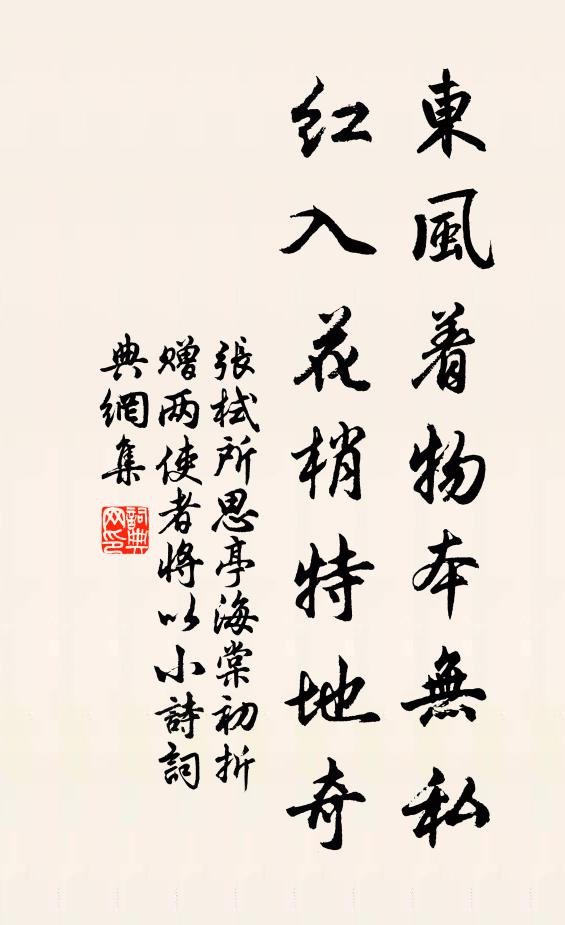 東風着物本無私
紅入花梢特地奇
張栻所思亭海棠初折
贈兩使者將以小詩詞
典網集
詞典网印